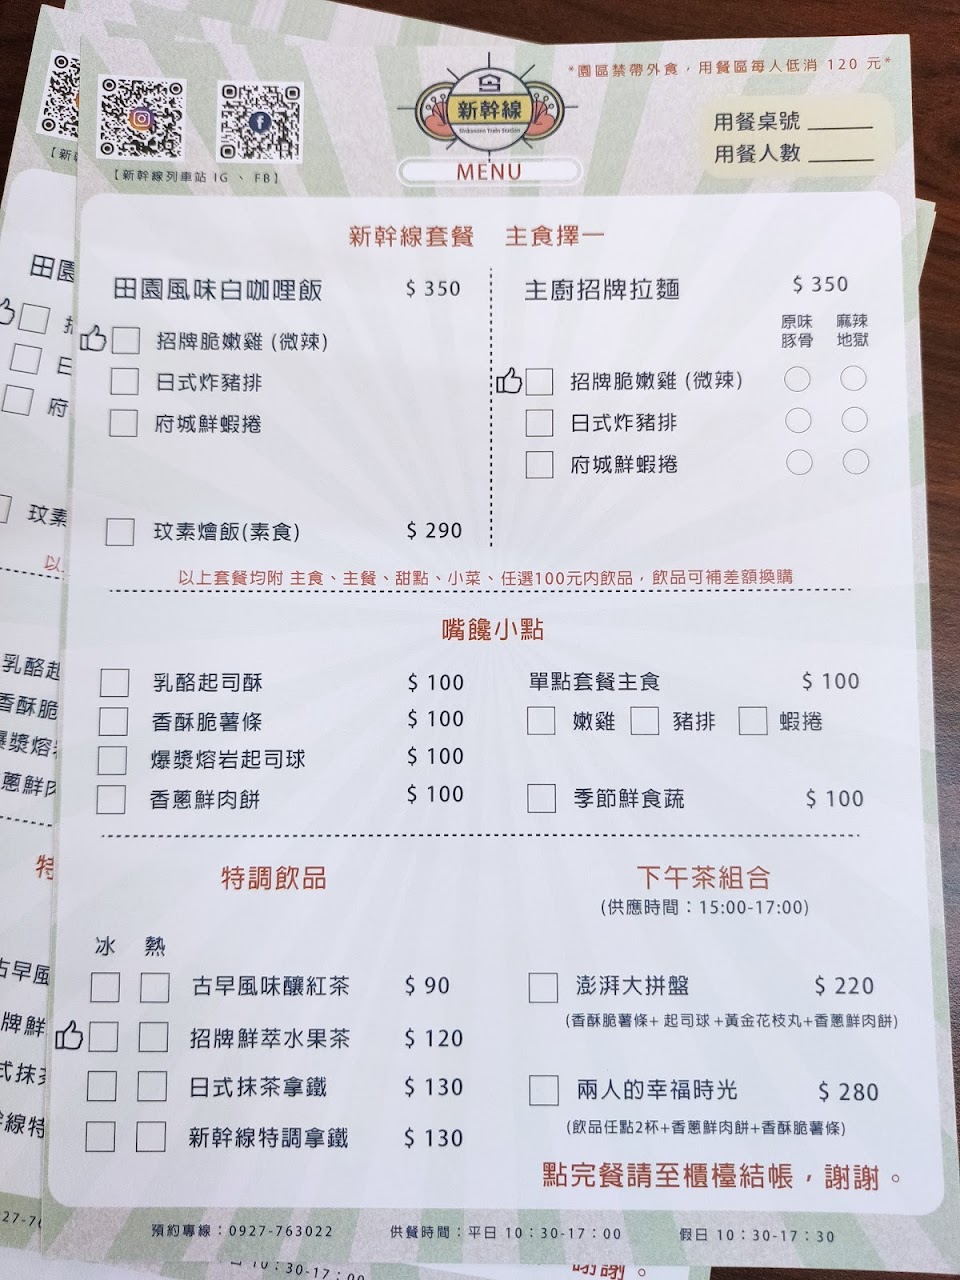 *園區禁帶外食，用餐區每人低消 120 元*
新幹線
Shikansen Train Station
MENU
用餐桌號
用餐人數
【新幹線列車站 IG 、 FB】
新幹線套餐 主食擇一
田園風味白咖哩飯 $ 350
招牌脆嫩雞 (微辣)
日式炸豬排
府城鮮蝦捲
玟素燴飯(素食) $ 290
主廚招牌拉麵 $ 350
原味豚骨 麻辣地獄
招牌脆嫩雞 (微辣)
日式炸豬排
府城鮮蝦捲
以上套餐均附 主食、主餐、甜點、小菜、任選100元内飲品，飲品可補差額換購
嘴饞小點
乳酪起司酥 $ 100
香酥脆薯條 $ 100
爆漿熔岩起司球 $ 100
香蔥鮮肉餅 $ 100
單點套餐主食 $ 100
嫩雞 豬排 蝦捲
季節鮮食蔬 $ 100
特調飲品
冰 熱
古早風味釀紅茶 $ 90
招牌鮮萃水果茶 $ 120
日式抹茶拿鐵 $ 130
新幹線特調拿鐵 $ 130
下午茶組合
(供應時間：15:00-17:00)
澎湃大拼盤 $ 220
(香酥脆薯條+ 起司球 +黃金花枝丸+香蔥鮮肉餅)
兩人的幸福時光 $ 280
(飲品任點2杯+香蔥鮮肉餅+香酥脆薯條)
點完餐請至櫃檯結帳，謝謝。
預約專線：0927-763022 供餐時間：平日 10：30-17：00 假日 10：30-17：30